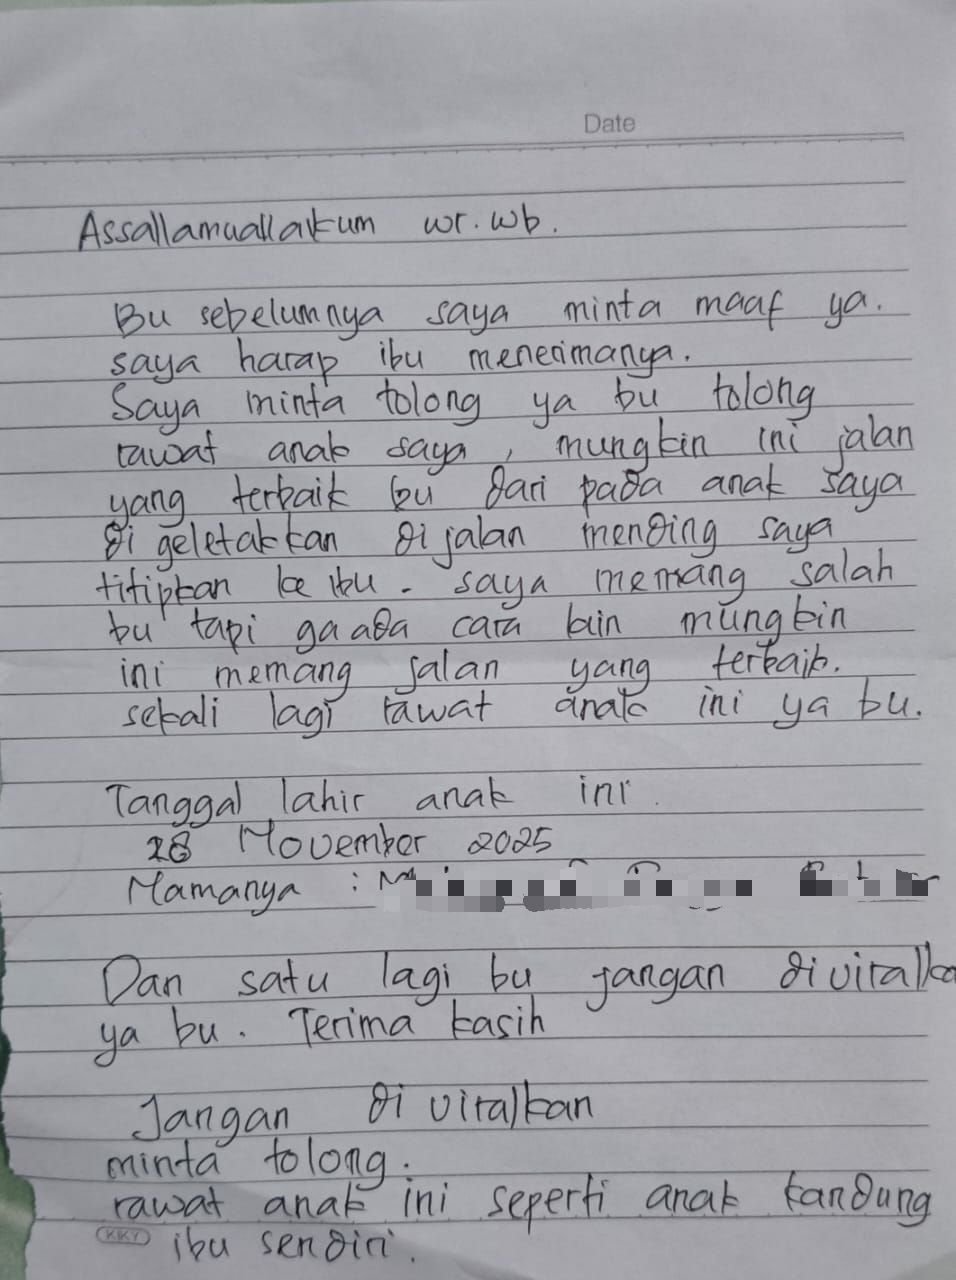 Date
Assallamuallaikum wr. wb.
Bu sebelumnya saya minta maaf ya.
saya harap ibu menerimanya.
Saya minta tolong ya bu tolong
rawat anak saya, mungkin ini jalan
yang terbaik bu dari pada anak saya
di geletakkan di jalan mending saya
titipkan ke ibu. saya memang salah
bu tapi ga ada cara lain mungkin
ini memang jalan yang terbaik.
sekali lagi rawat anak ini ya bu.
Tanggal lahir anak ini
28 November 2025
Mamanya :
Dan satu lagi bu jangan diviralka
ya bu. Terima kasih
Jangan di viralkan
minta tolong.
rawat anak ini seperti anak kandung
KIKY
ibu sendiri.